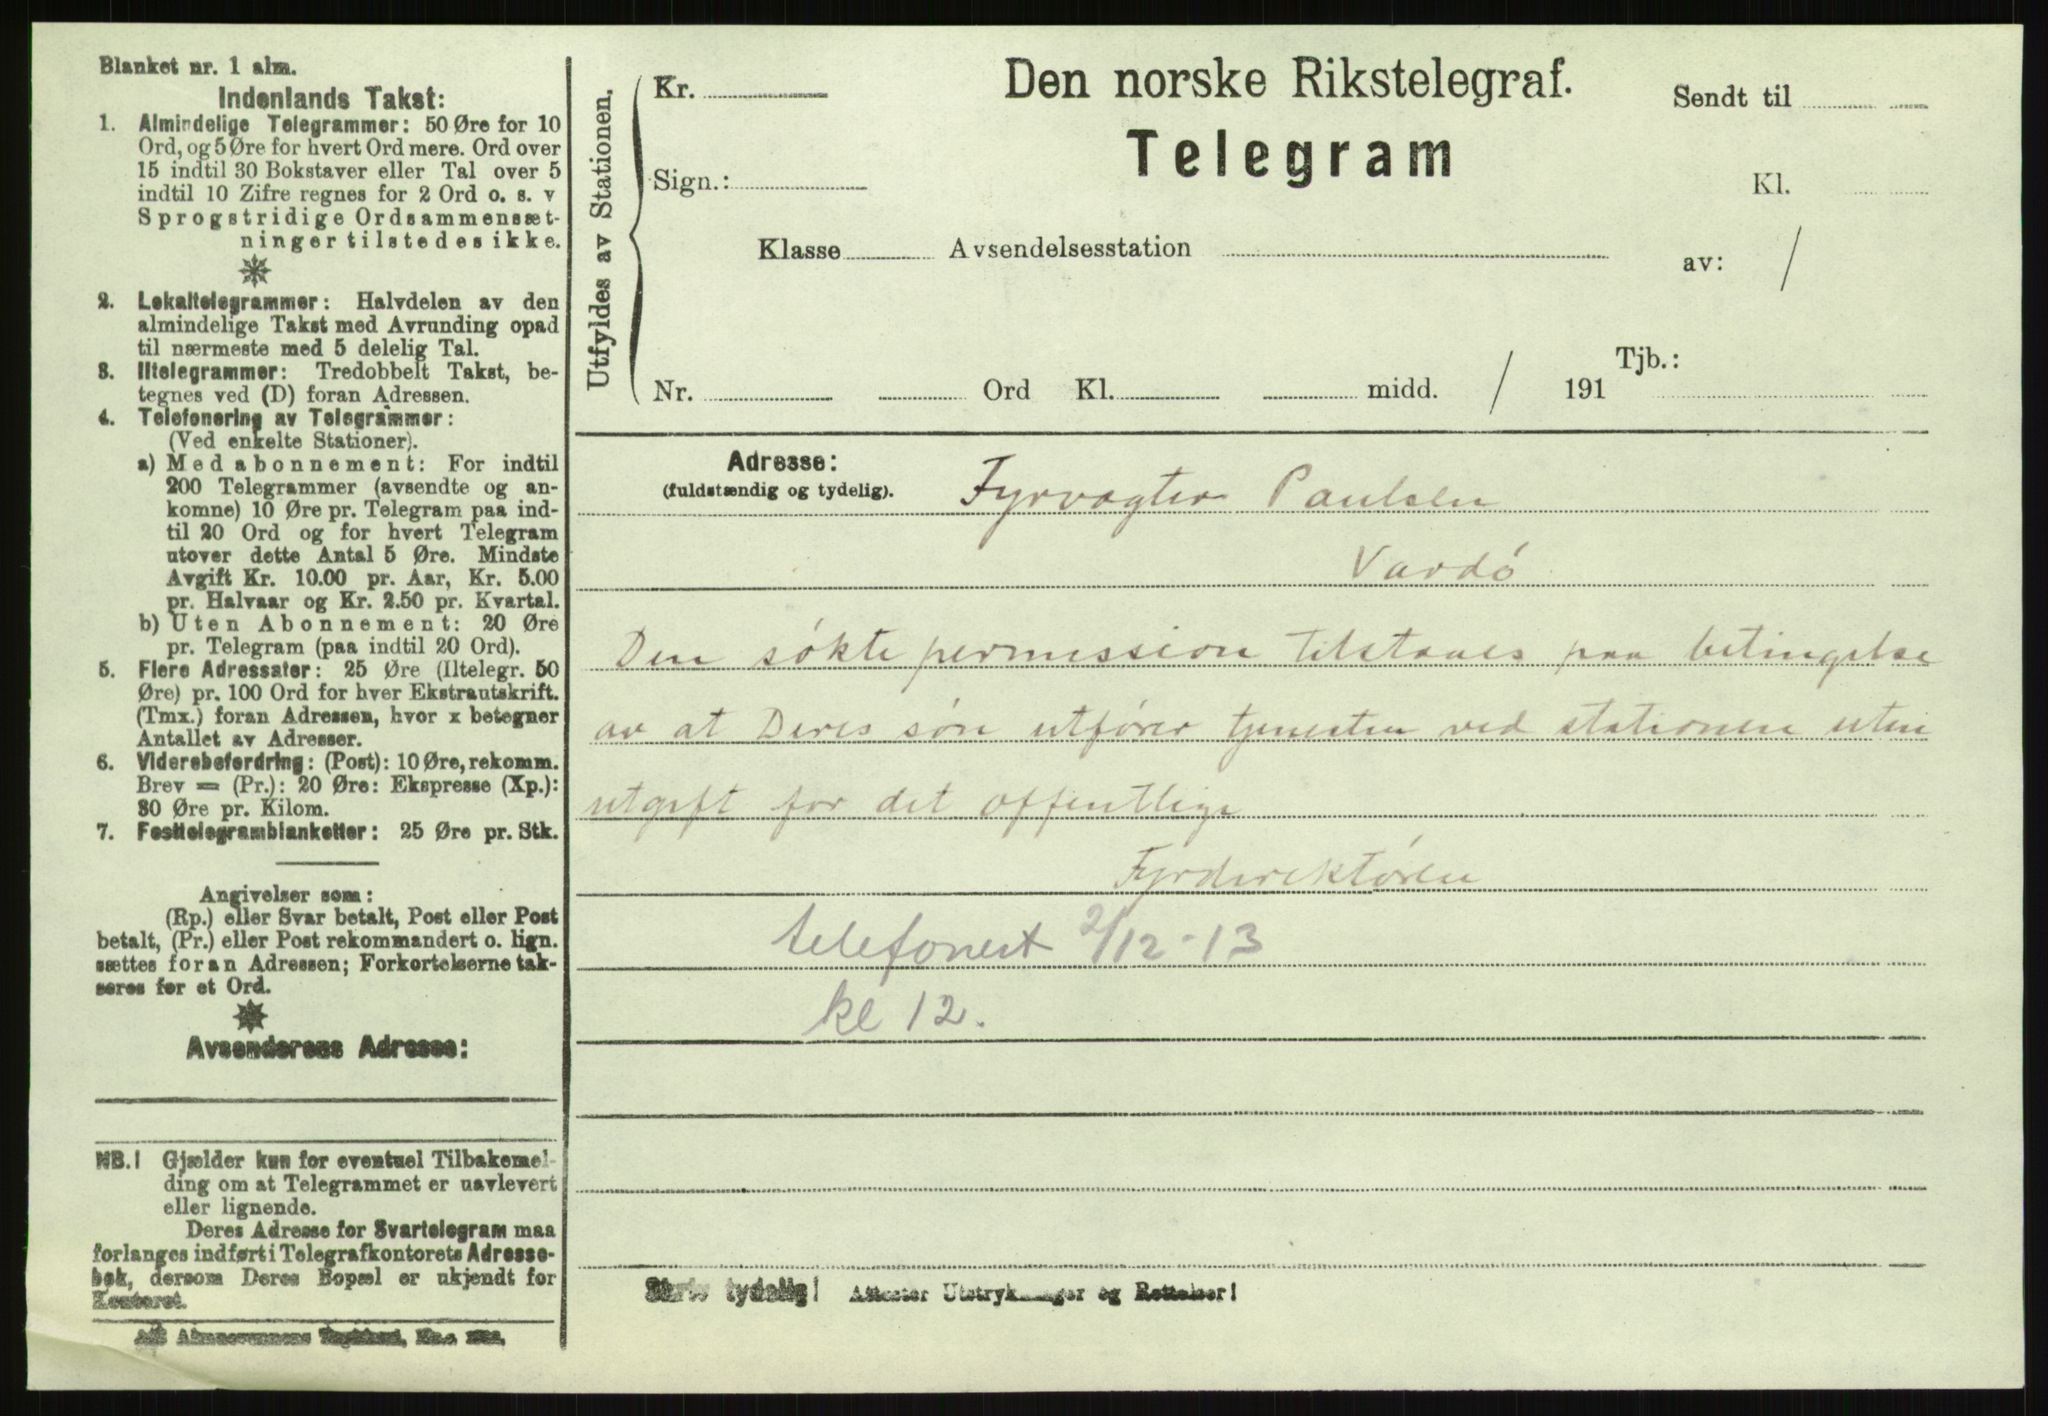 Blanket nr. 1 alm.
Indenlands Takst:
1. Almindelige Telegrammer: 50 Øre for 10
Ord, og 5 Øre for hvert Ord mere. Ord over
15 indtil 30 Bokstaver eller Tal over 5
indtil 10 Zifre regnes for 2 Ord o. s. v
Sprogstridige Ordsammensæt-
ninger tilstedes ikke.
2. Lokaltelegrammer: Halvdelen av den
almindelige Takst med Avrunding opad
til nærmeste med 5 delelig Tal.
3. Iltelegrammer: Tredobbelt Takst, be-
tegnes ved (D) foran Adressen.
4. Telefonering av Telegrammer:
(Ved enkelte Stationer).
a) Med abonnement: For indtil
200 Telegrammer (avsendte og an-
komne) 10 Øre pr. Telegram paa ind-
til 20 Ord og for hvert Telegram
utover dette Antal 5 Øre. Mindste
Avgift Kr. 10.00 pr. Aar, Kr. 5.00
pr. Halvaar og Kr. 2.50 pr. Kvartal.
b) Uten Abonnement: 20 Øre
pr. Telegram (paa indtil 20 Ord).
5. Flere Adressater: 25 Øre (Iltelegr. 50
Øre) pr. 100 Ord for hver Ekstrautskrift.
(Tmx.) foran Adressen, hvor x betegner
Antallet av Adresser.
6. Viderebefordring: (Post): 10 Øre, rekomm.
Brev = (Pr.): 20 Øre: Ekspresse (Xp.):
30 Øre pr. Kilom.
7. Festtelegramblanketter: 25 Øre pr. Stk.
Angivelser som:
(Rp.) eller Svar betalt, Post eller Post
betalt, (Pr.) eller Post rekommandert o. lign.
sættes foran Adressen; Forkortelserne tak-
seres for et Ord.
Avsenderens Adresse:
NB.! Gjælder kun for eventuel Tilbakemel-
ding om at Telegrammet er uavlevert
eller lignende.
Deres Adresse for Svartelegram maa
forlanges indført i Telegrafkontorets Adresse-
bok, dersom Deres Bopæl er ukjendt for
Kontoret.
Utfyldes av Stationen.
Kr.
Den norske Rikstelegraf.
Sendt til
Telegram
Sign.:
Kl.
Klasse Avsendelsesstation
av: /
Nr. Ord Kl. midd. / 191 Tjb.:
Adresse:
(fuldstændig og tydelig).
Fyrvogter Paulsen
Vardö
Den sökte permission tilstaaes paa betingelse
av at Deres sön utförer tjenesten ved stationen uten
utgift for det offentlige
Fyrdirektören
telefonert 2/12-13
kl 12.
Skriv tydelig! Attester Utstrykninger og Rettelser!